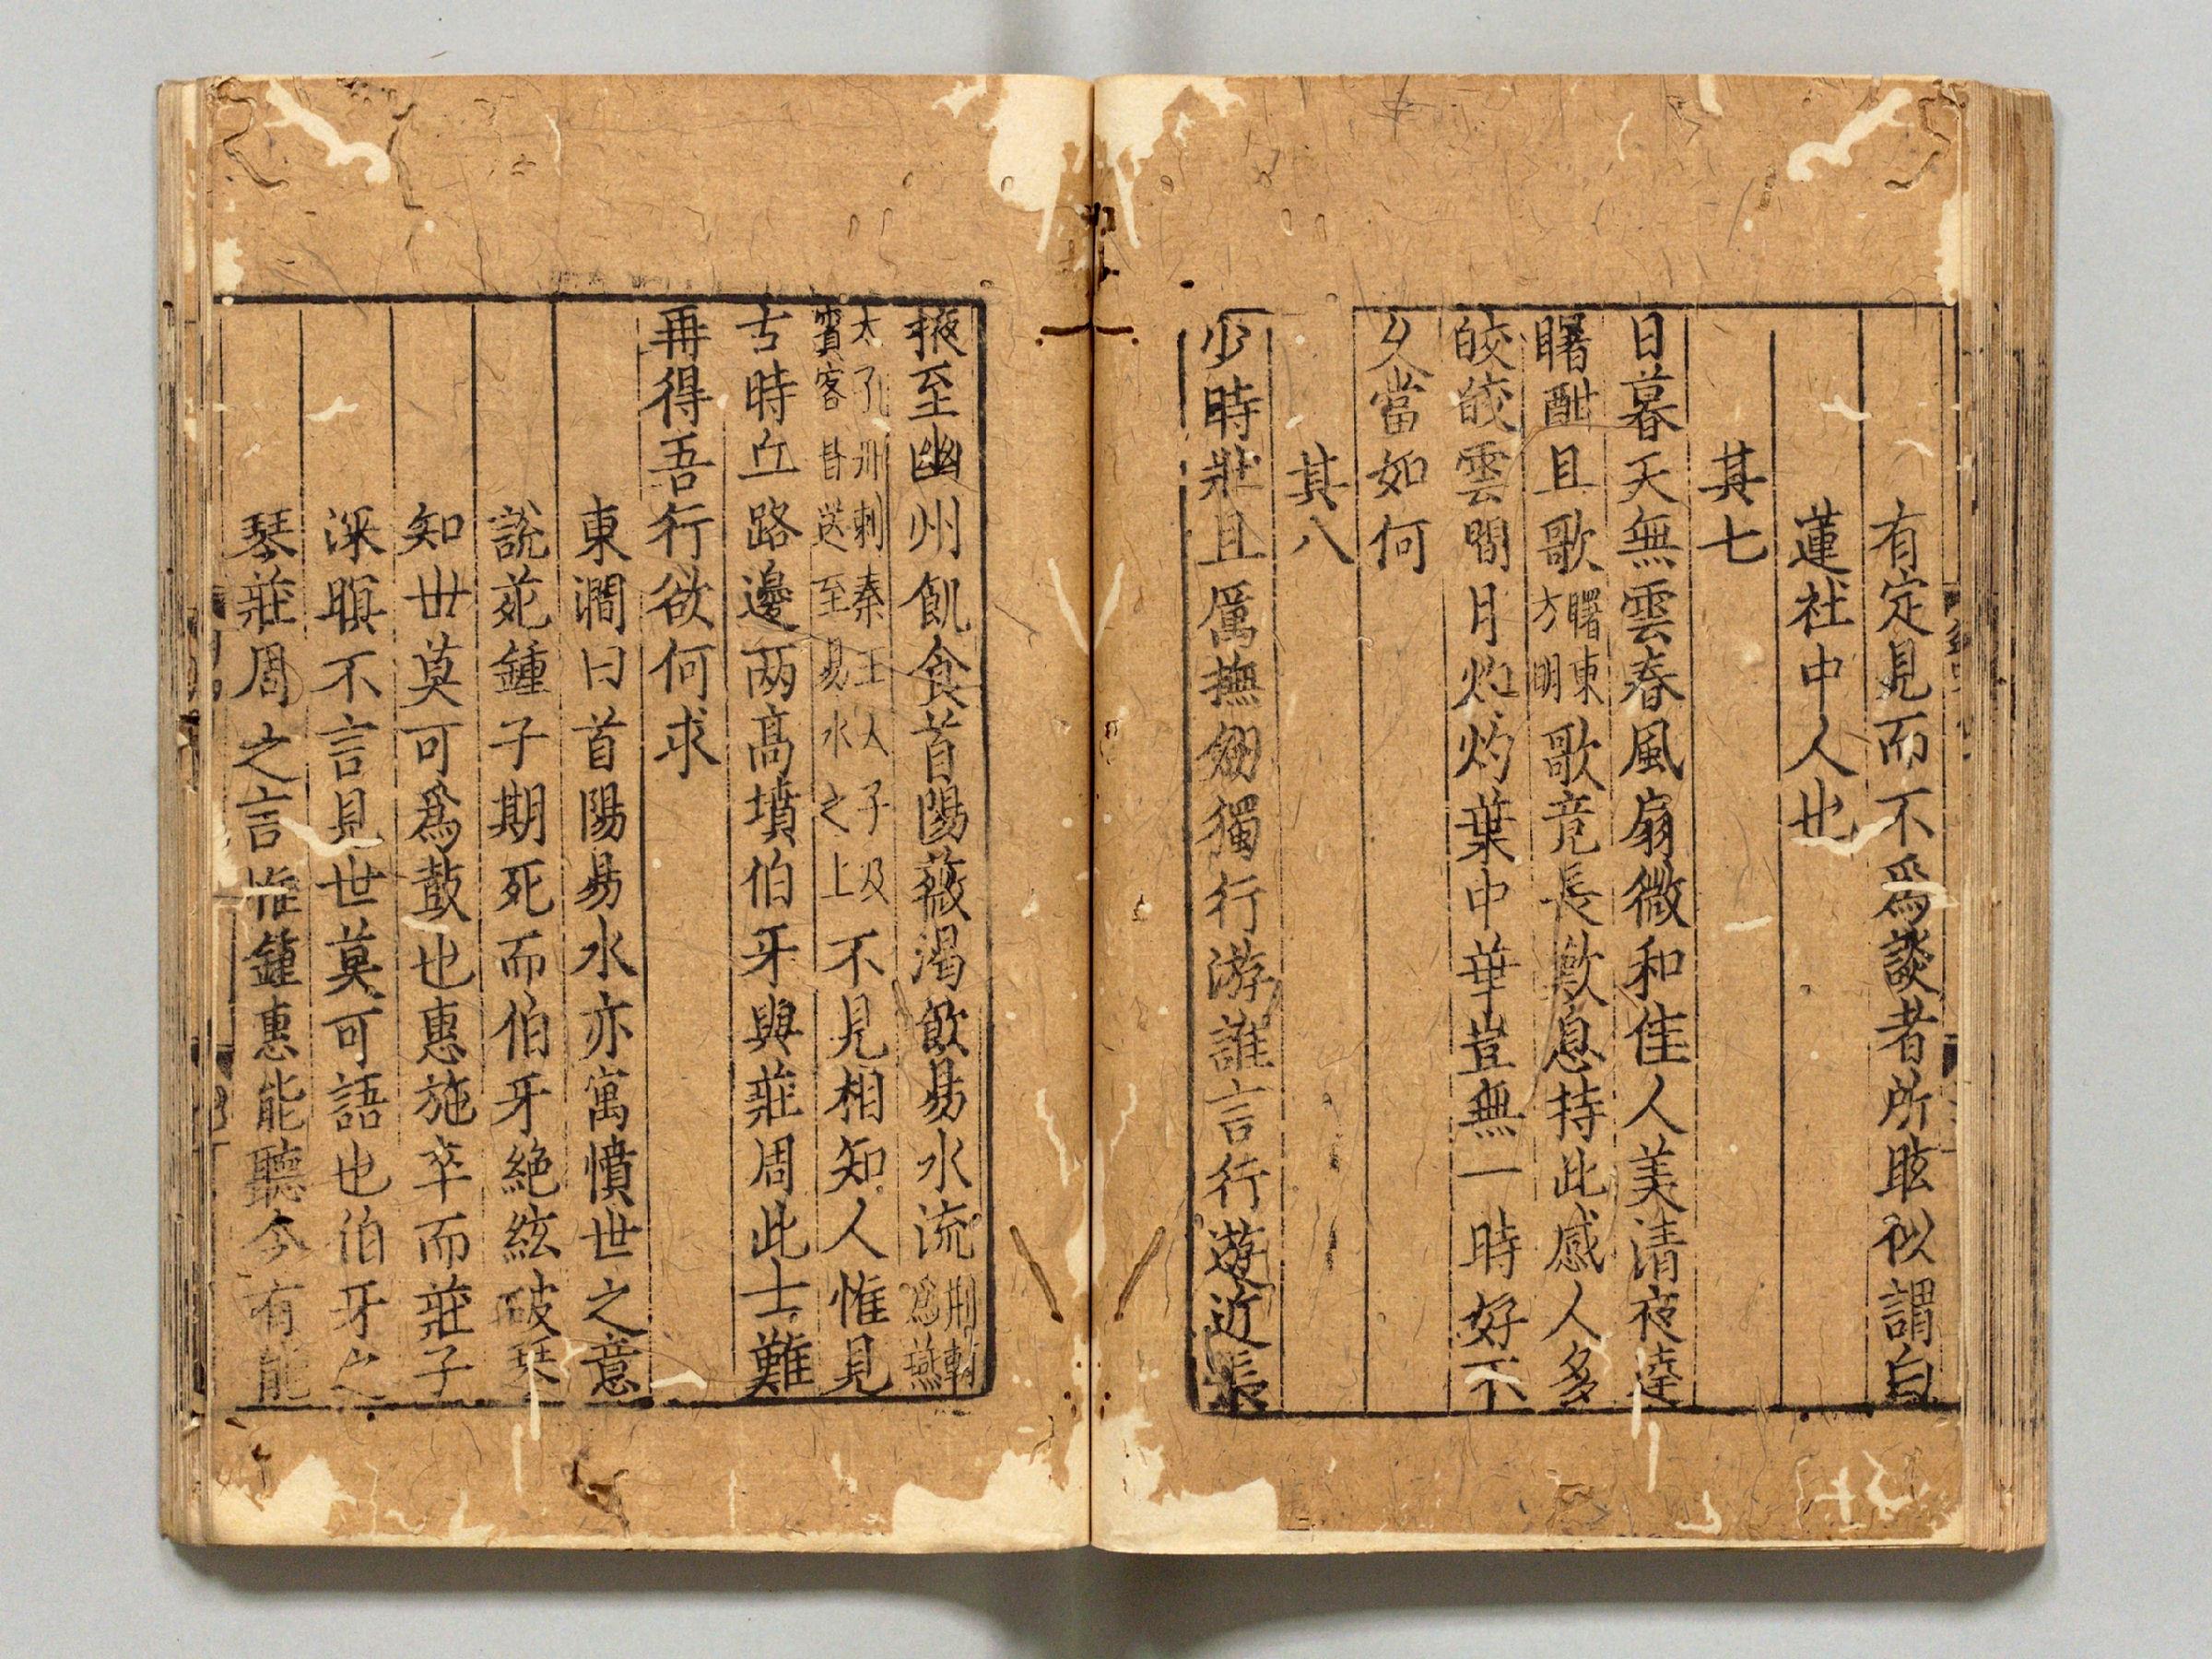 有定見而不爲談者所眩似謂白
蓮社中人也
其七
日暮天無雲春風扇微和佳人美清夜達
曙酣且歌曙東方明歌竟長歎息持此感人多
皎皎雲間月灼灼葉中華豈無一時好不
乆當如何
其八
少時壯且厲撫劒獨行游誰言行遊近張
掖至幽州飢食首陽薇渴飮易水流荆軻爲燕
太子刺秦王人子及賓客送至易水之上不見相知人惟見
古時丘路邊兩髙墳伯牙與莊周此士難
再得吾行欲何求
東澗曰首陽易水亦寓憤世之意
說苑鍾子期死而伯牙絶絃破琴
知世莫可爲鼓也惠施卒而莊子
深瞑不言見世莫可語也伯牙之
琴莊周之言惟鍾惠能聽今有能